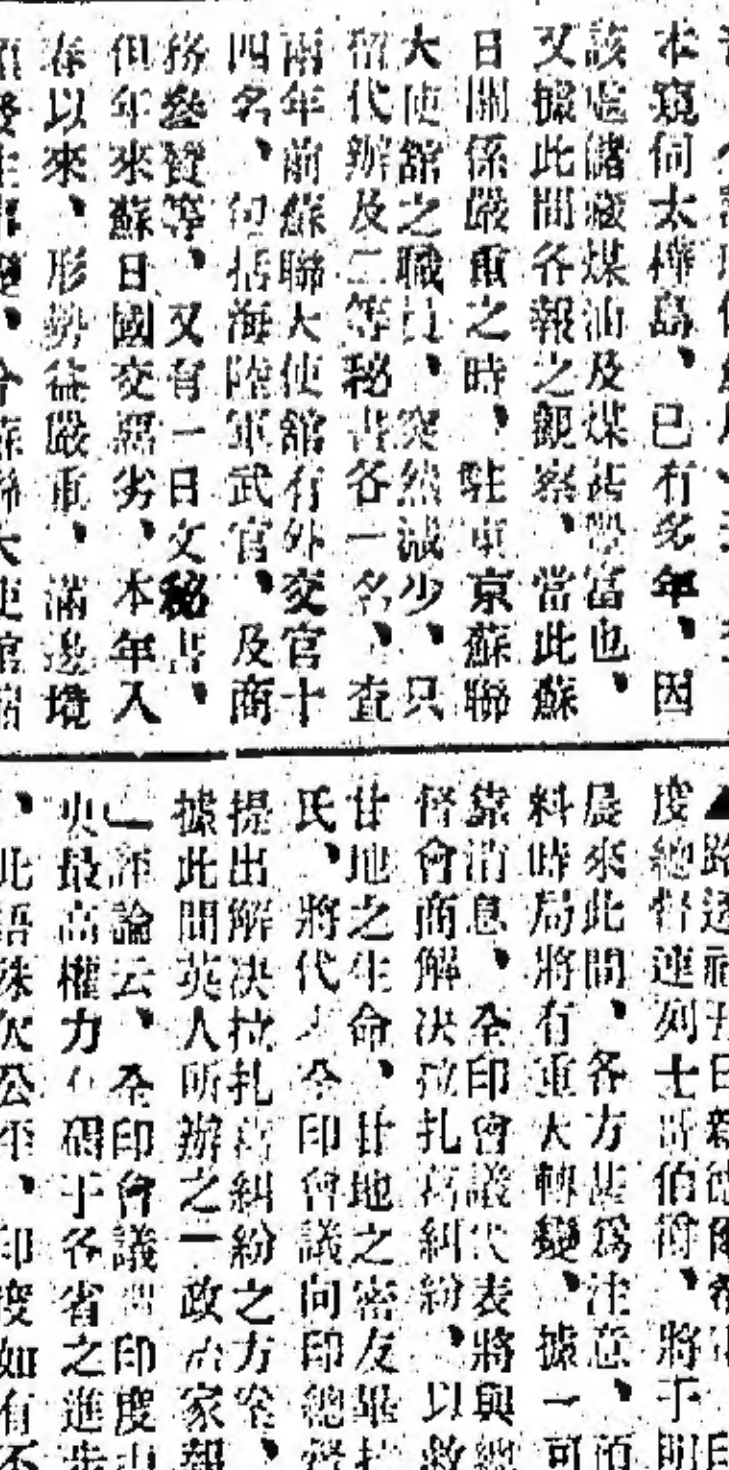 本窺伺太樺島、已有多年、因
該處儲藏煤油及煤甚豐富也、
又據此間各報之觀察、當此蘇
日關係嚴重之時、駐東京蘇聯
大使舘之職員、突然減少、只
留代辦及二等秘書各一名、查
兩年前蘇聯大使舘有外交官十
四名、包括海陸軍武官、及商
務參贊等、又有一日文秘書、
但年來蘇日國交惡劣、本年入
春以來、形勢益嚴重、滿邊境
蘇聯大使舘
▲路透社
度總督連列士哥伯爵、將于明
晨來此間、各方甚爲注意、預
料時局將有重大轉變、據一可
靠消息、全印會議代表將與總
督會商解決拉扎哥糾紛、以救
甘地之生命、甘地之密友
氏、將代 全印會議向印總督
提出解決拉扎哥糾紛之方案、
據此間英人所辦之一政治家報
評論云、全印會議 印度
央最高權力 碍于各省之進步
、此語殊欠公平、印度如有不